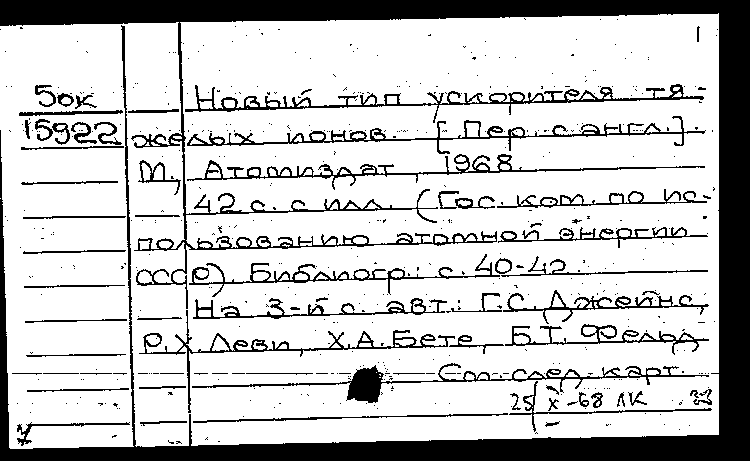 1
5ок Новый тип ускорителя тя-
15922 желых ионов. [Пер. с англ.].
М., Атомиздат, 1968.
42 с. с илл. (Гос. ком. по ис-
пользованию атомной энергии
СССР). Библиогр.: с. 40-42.
На 3-й с. авт.: Г.С. Джейнс,
Р.Х. Леви, Х.А. Бете, Б.Т. Фельд
См. след. карт.
25/X-68 ЛК